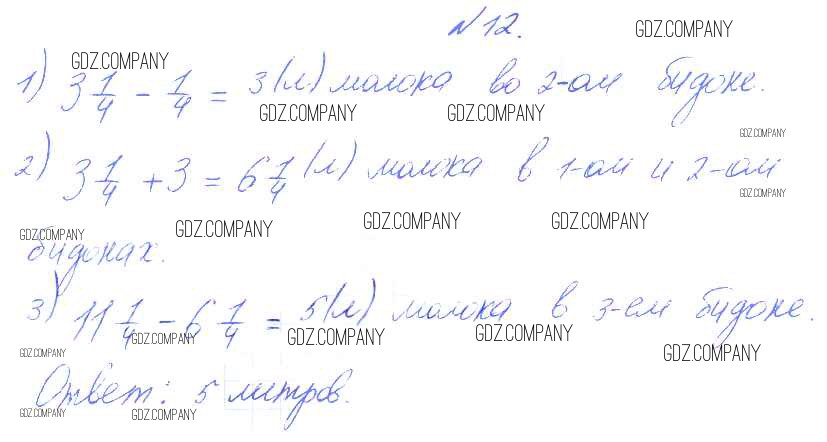 №12.
GDZ.COMPANY
GDZ.COMPANY
1) 3 1/4 - 1/4 = 3 (л) молока во 2-ом бидоне.
GDZ.COMPANY GDZ.COMPANY
GDZ.COMPANY
2) 3 1/4 + 3 = 6 1/4 (л) молока в 1-ом и 2-ом
GDZ.COMPANY
GDZ.COMPANY GDZ.COMPANY GDZ.COMPANY GDZ.COMPANY
бидонах.
3) 11 1/4 - 6 1/4 = 5 (л) молока в 3-ем бидоне.
GDZ.COMPANY GDZ.COMPANY GDZ.COMPANY
GDZ.COMPANY GDZ.COMPANY
Ответ: 5 литров.
GDZ.COMPANY GDZ.COMPANY